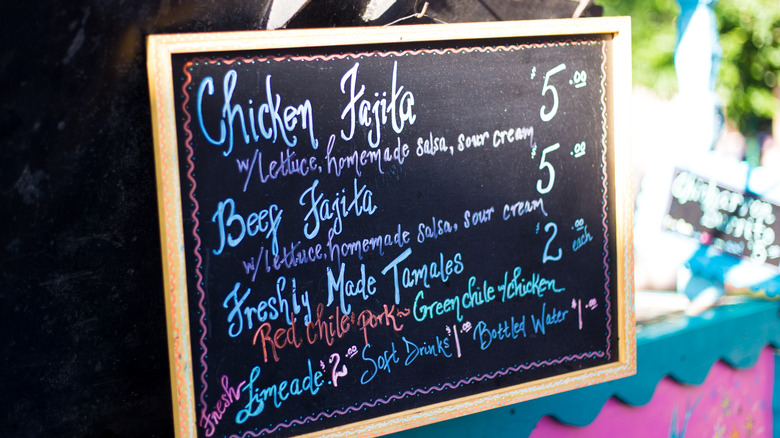 Chicken Fajita $5.00
w/Lettuce, homemade salsa, sour cream
Beef Fajita $5.00
w/lettuce, homemade salsa, sour cream
Freshly Made Tamales $2.00 each
Red chile & pork~ Green chile w/chicken
Fresh~ Limeade $2.00 Soft Drinks $1.00 Bottled Water $1.00